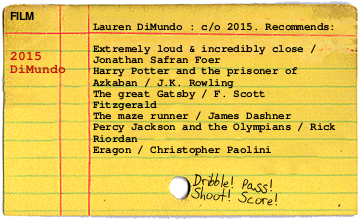 FILM
Lauren DiMundo : c/o 2015. Recommends:
2015
DiMundo
Extremely loud & incredibly close /
Jonathan Safran Foer
Harry Potter and the prisoner of
Azkaban / J.K. Rowling
The great Gatsby / F. Scott
Fitzgerald
The maze runner / James Dashner
Percy Jackson and the Olympians / Rick
Riordan
Eragon / Christopher Paolini
Dribble! Pass!
Shoot! Score!